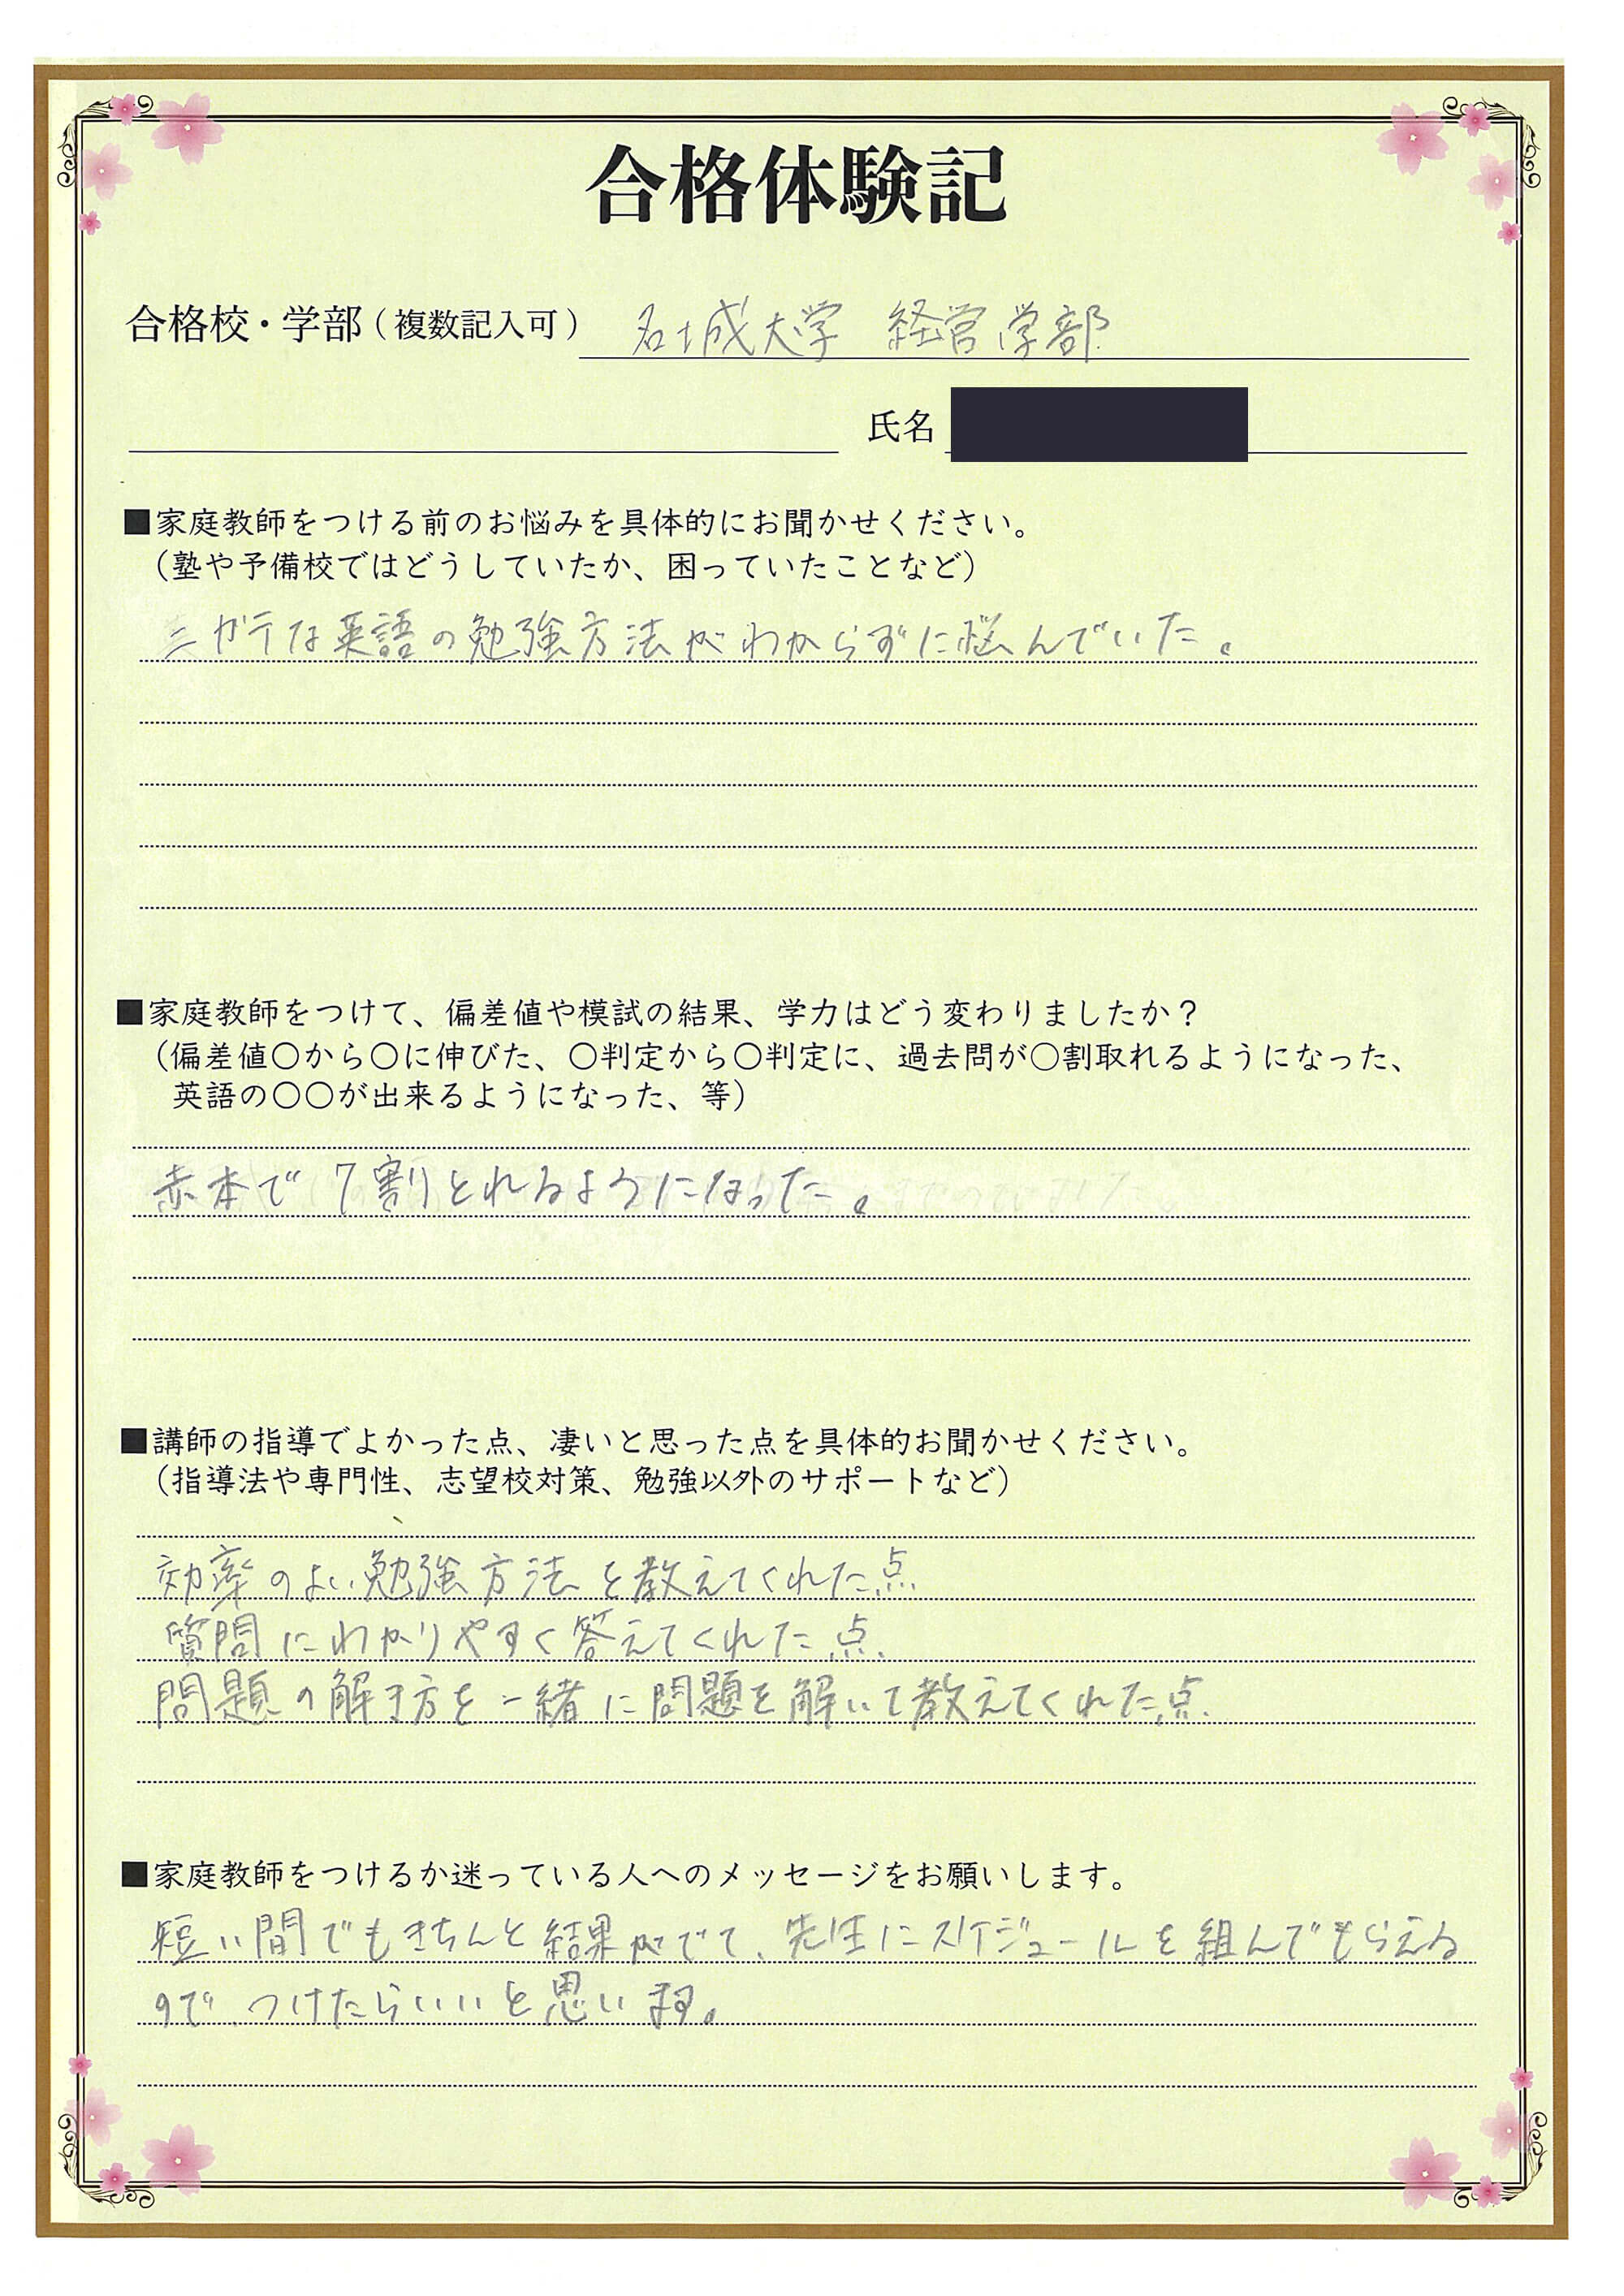 合格体験記
合格校・学部（複数記入可） 名城大学 経営学部
氏名
■家庭教師をつける前のお悩みを具体的にお聞かせください。
（塾や予備校ではどうしていたか、困っていたことなど）
ニガテな英語の勉強方法がわからずに悩んでいた。
■家庭教師をつけて、偏差値や模試の結果、学力はどう変わりましたか？
（偏差値〇から〇に伸びた、〇判定から〇判定に、過去問が〇割取れるようになった、
英語の〇〇が出来るようになった、等）
赤本で7割とれるようになった。
■講師の指導でよかった点、凄いと思った点を具体的お聞かせください。
（指導法や専門性、志望校対策、勉強以外のサポートなど）
効率のよい勉強方法を教えてくれた点
質問にわかりやすく答えてくれた点、
問題の解き方を一緒に問題を解いて教えてくれた点.
■家庭教師をつけるか迷っている人へのメッセージをお願いします。
短い間でもきちんと結果がでて、先生にスケジュールを組んでもらえる
ので、つけたらいいと思います。